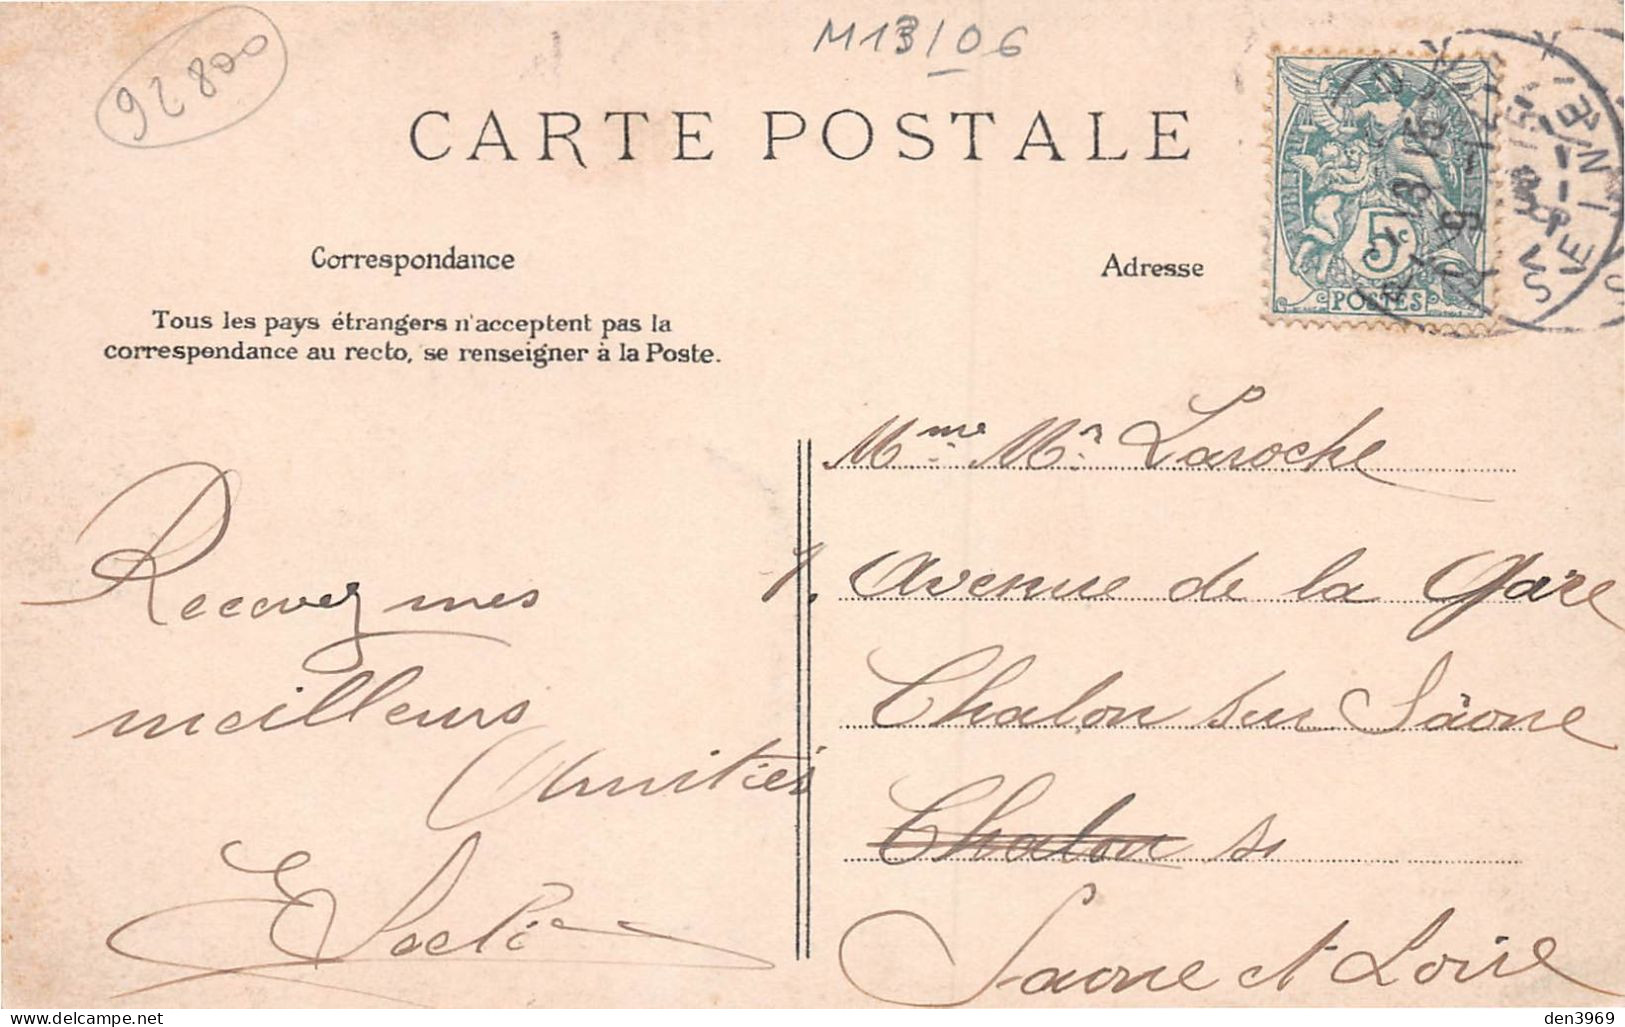 92800
M13/06
CARTE POSTALE
Correspondance
Adresse
Tous les pays étrangers n'acceptent pas la
correspondance au recto, se renseigner à la Poste.
5c
POSTES
Recevez mes
meilleurs
Amitiés
Mme Mr Laroche
Avenue de la Gare
Chalon sur Saône
Chalon s
Saone et Loire
den3969